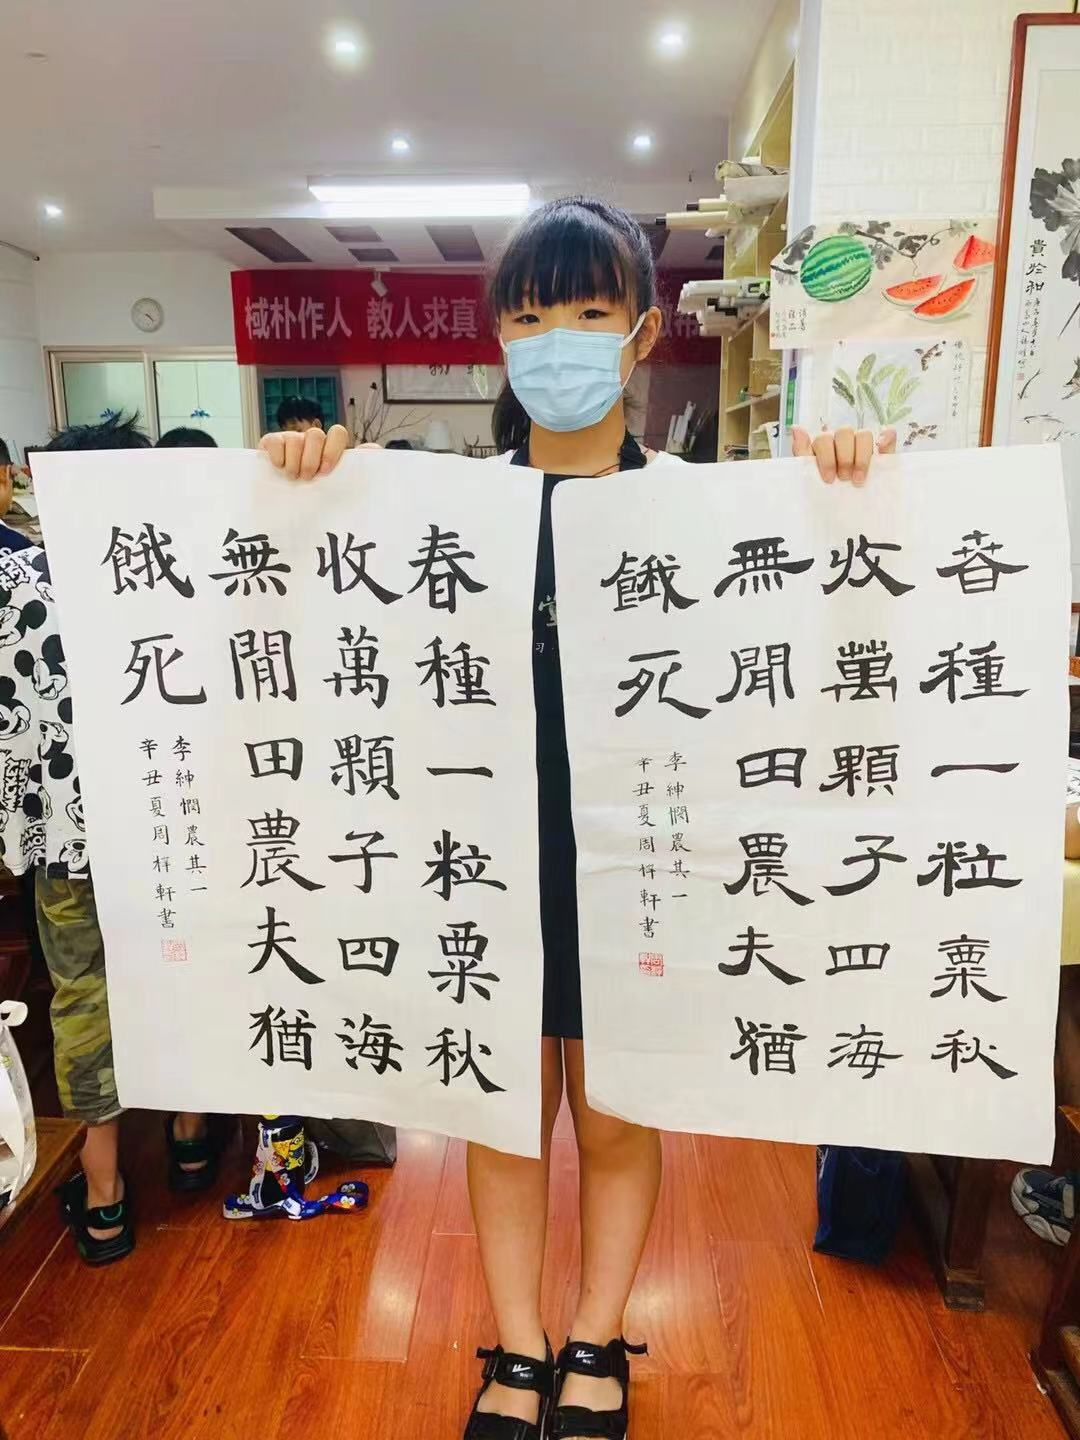 棫朴作人 教人求真
春種一粒粟秋
收萬顆子四海
無閒田農夫猶
餓死
李紳憫農其一
辛丑夏周梓軒書
春種一粒粟秋
收萬顆子四海
無閒田農夫猶
餓死
李紳憫農其一
辛丑夏周梓軒書
貴於和